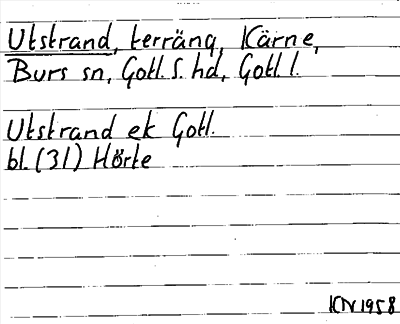 Utstrand, terräng, Kärne,
Burs sn, Gotl. S. hd, Gotl. l.
Utstrand ek Gotl.
bl. (31) Hörte
KN 1958